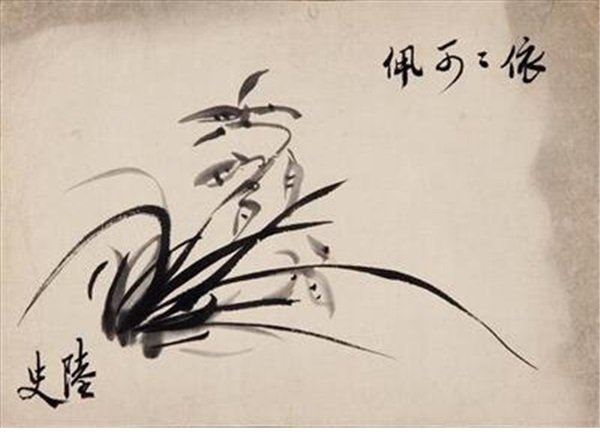 依〻可佩
陸史